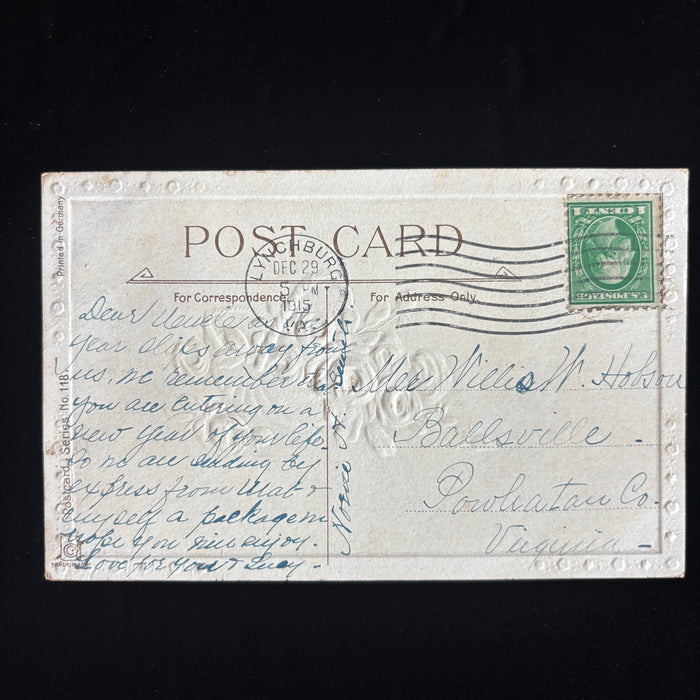 POST CARD
LYNCHBURG
DEC 29
5 PM
1915
VA.
1 CENT 1
U.S. POSTAGE
For Correspondence.
For Address Only.
Printed in Germany
Postcard Series No. 118.
Dear Uncle, as the
year slips away from
us, we remember
you are entering on a
new year of your life.
So we are sending by
express from &
myself a package
hope you will enjoy.
Love for you & Lucy -
Mr. Willis W. Hobson
Ballsville -
Powhatan Co.
Virginia -